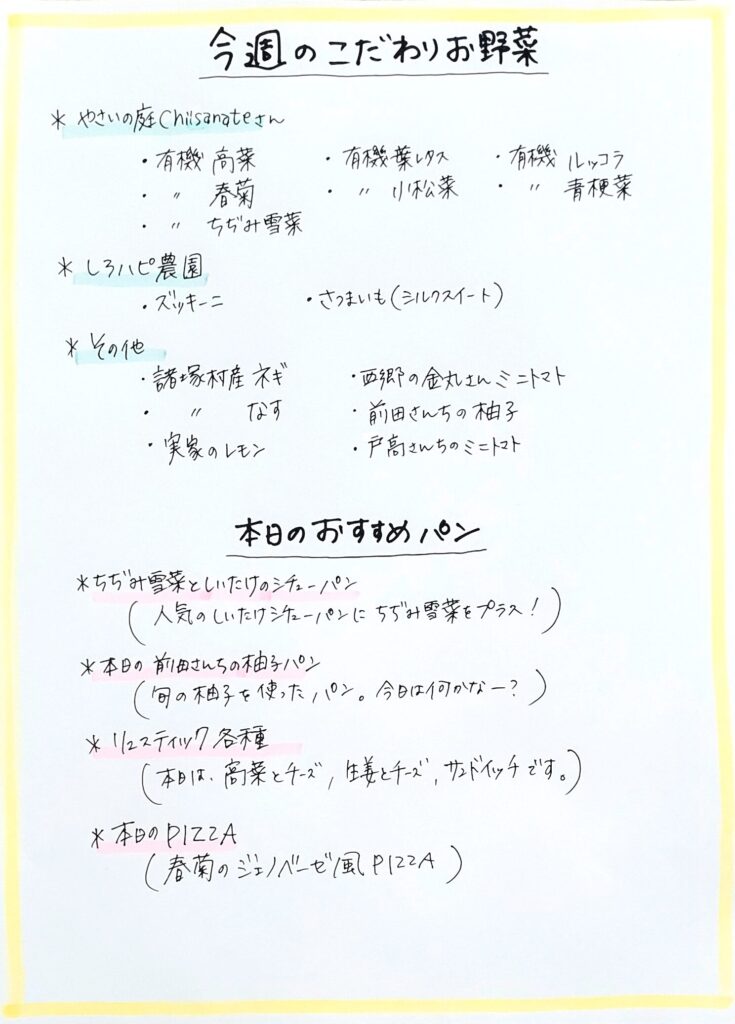 今週のこだわりお野菜
* やさいの庭Chiisanateさん
・有機 高菜 ・有機葉レタス ・有機 ルッコラ
・ 〃 春菊 ・ 〃 小松菜 ・ 〃 青梗菜
・ 〃 ちぢみ雪菜
* しろハピ農園
・ズッキーニ ・さつまいも(シルクスイート)
* その他
・諸塚村産 ネギ ・西郷の金丸さんミニトマト
・ 〃 なす ・前田さんちの柚子
・実家のレモン ・戸高さんちのミニトマト
本日のおすすめパン
*ちぢみ雪菜としいたけのシチューパン
(人気のしいたけシチューパンにちぢみ雪菜をプラス!)
*本日の前田さんちの柚子パン
(旬の柚子を使ったパン。今日は何かなー?)
* リュスティック各種
(本日は、高菜とチーズ, 生姜とチーズ, サンドイッチです。)
* 本日のPIZZA
(春菊のジェノベーゼ風PIZZA)